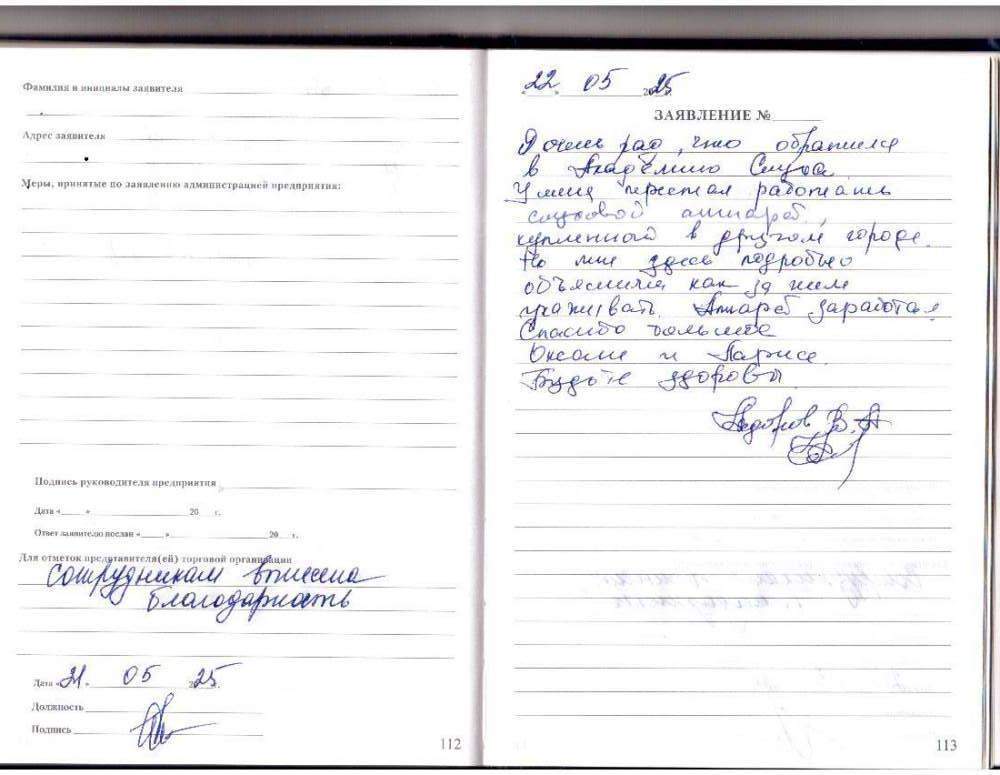 Фамилия и инициалы заявителя
Адрес заявителя
Меры, принятые по заявлению администрацией предприятия:
Подпись руководителя предприятия
Дата « » 20 г.
Ответ заявителю послан « » 20 г.
Для отметок представителя(ей) торговой организации
Сотрудникам вынесена
благодарность
Дата «21» 05 2025.
Должность
Подпись
112
22 05 2025
ЗАЯВЛЕНИЕ №
Я очень рад, что обратился
в Академию Слуха.
У меня перестал работать
слуховой аппарат,
купленный в другом городе.
Но мне здесь подробно
объяснили как за ним
ухаживать. Аппарат заработал.
Спасибо большое
Оксане и Ларисе.
Будьте здоровы.
В. А
113